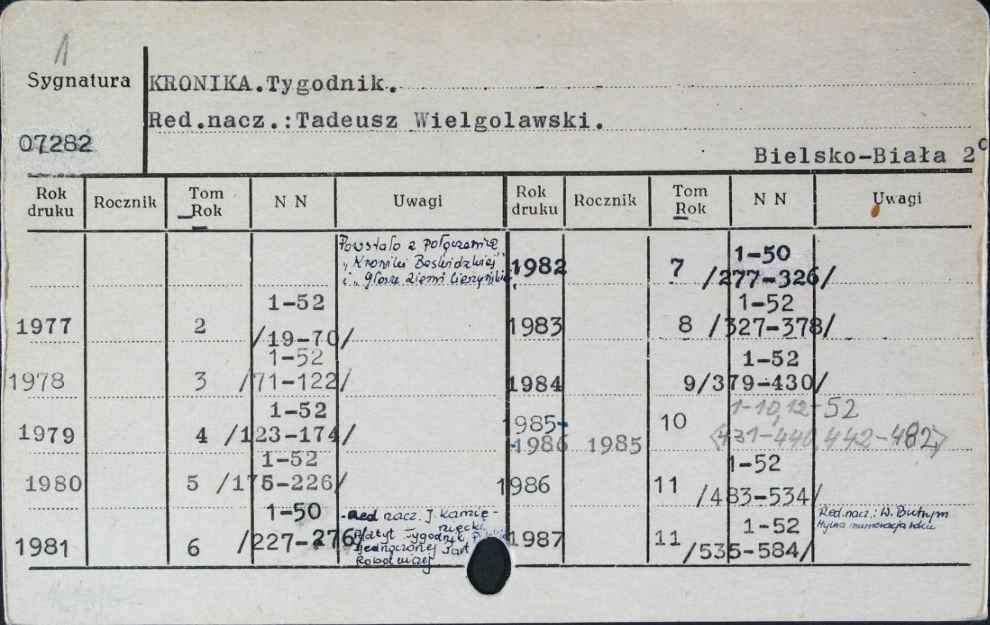 1
Sygnatura
KRONIKA.Tygodnik.
Red.nacz.:Tadeusz Wielgolawski.
07282
Bielsko-Biała 2°
Rok druku Rocznik Tom Rok N N Uwagi Rok druku Rocznik Tom Rok N N Uwagi
Powstało z połączenia
"Kroniki Beskidzkiej
i "Głosu Ziemi Cieszyńskiej
1977 2 1-52 /19-70/
1978 3 1-52 /71-122/
1979 4 1-52 /123-174/
1980 5 1-52 /175-226/
1981 6 1-50 /227-276/
-Red nacz. J. Kamie-
niecki
Tygodnik
Zjednoczonej Part
Robotniczej
1982 7 1-50 /277-326/
1983 8 1-52 /327-378/
1984 9 1-52 /379-430/
1985-
-1986 1985 10 1-10,12-52 (431-440,442-482)
1986 11 1-52 /483-534/
1987 11 1-52 /535-584/
Red.nacz.: W. Butrym
Mylna numeracja roku